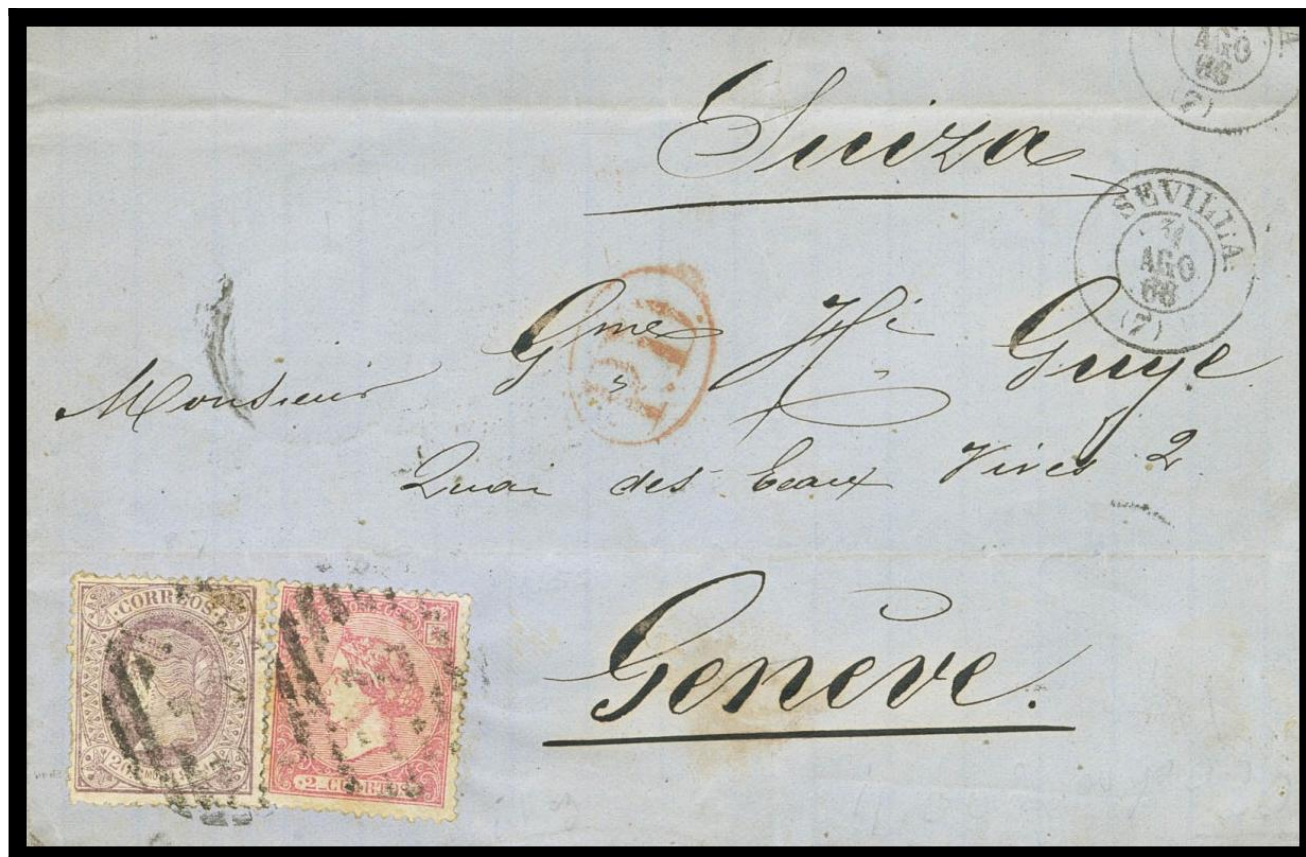 AGO
(7)
Suiza
SEVILLA.
31
AGO
(7)
P.D.
Monsieur Gme Hi Guye
Quai des Eaux Vives 2
Genève.
CORREOS
2 CUARTOS